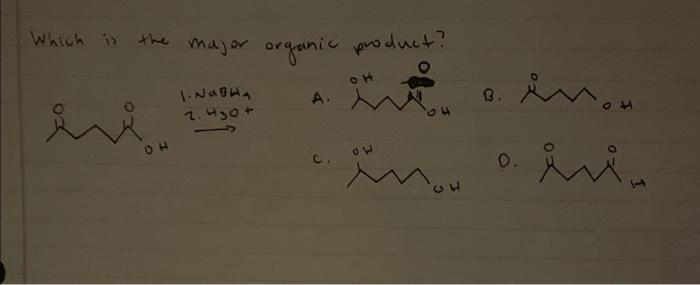 Which is the major organic product?
1. NaBH4
2. H3O+
O
O
OH
A.
OH
O
OH
B.
O
OH
C.
OH
OH
D.
O
O
H